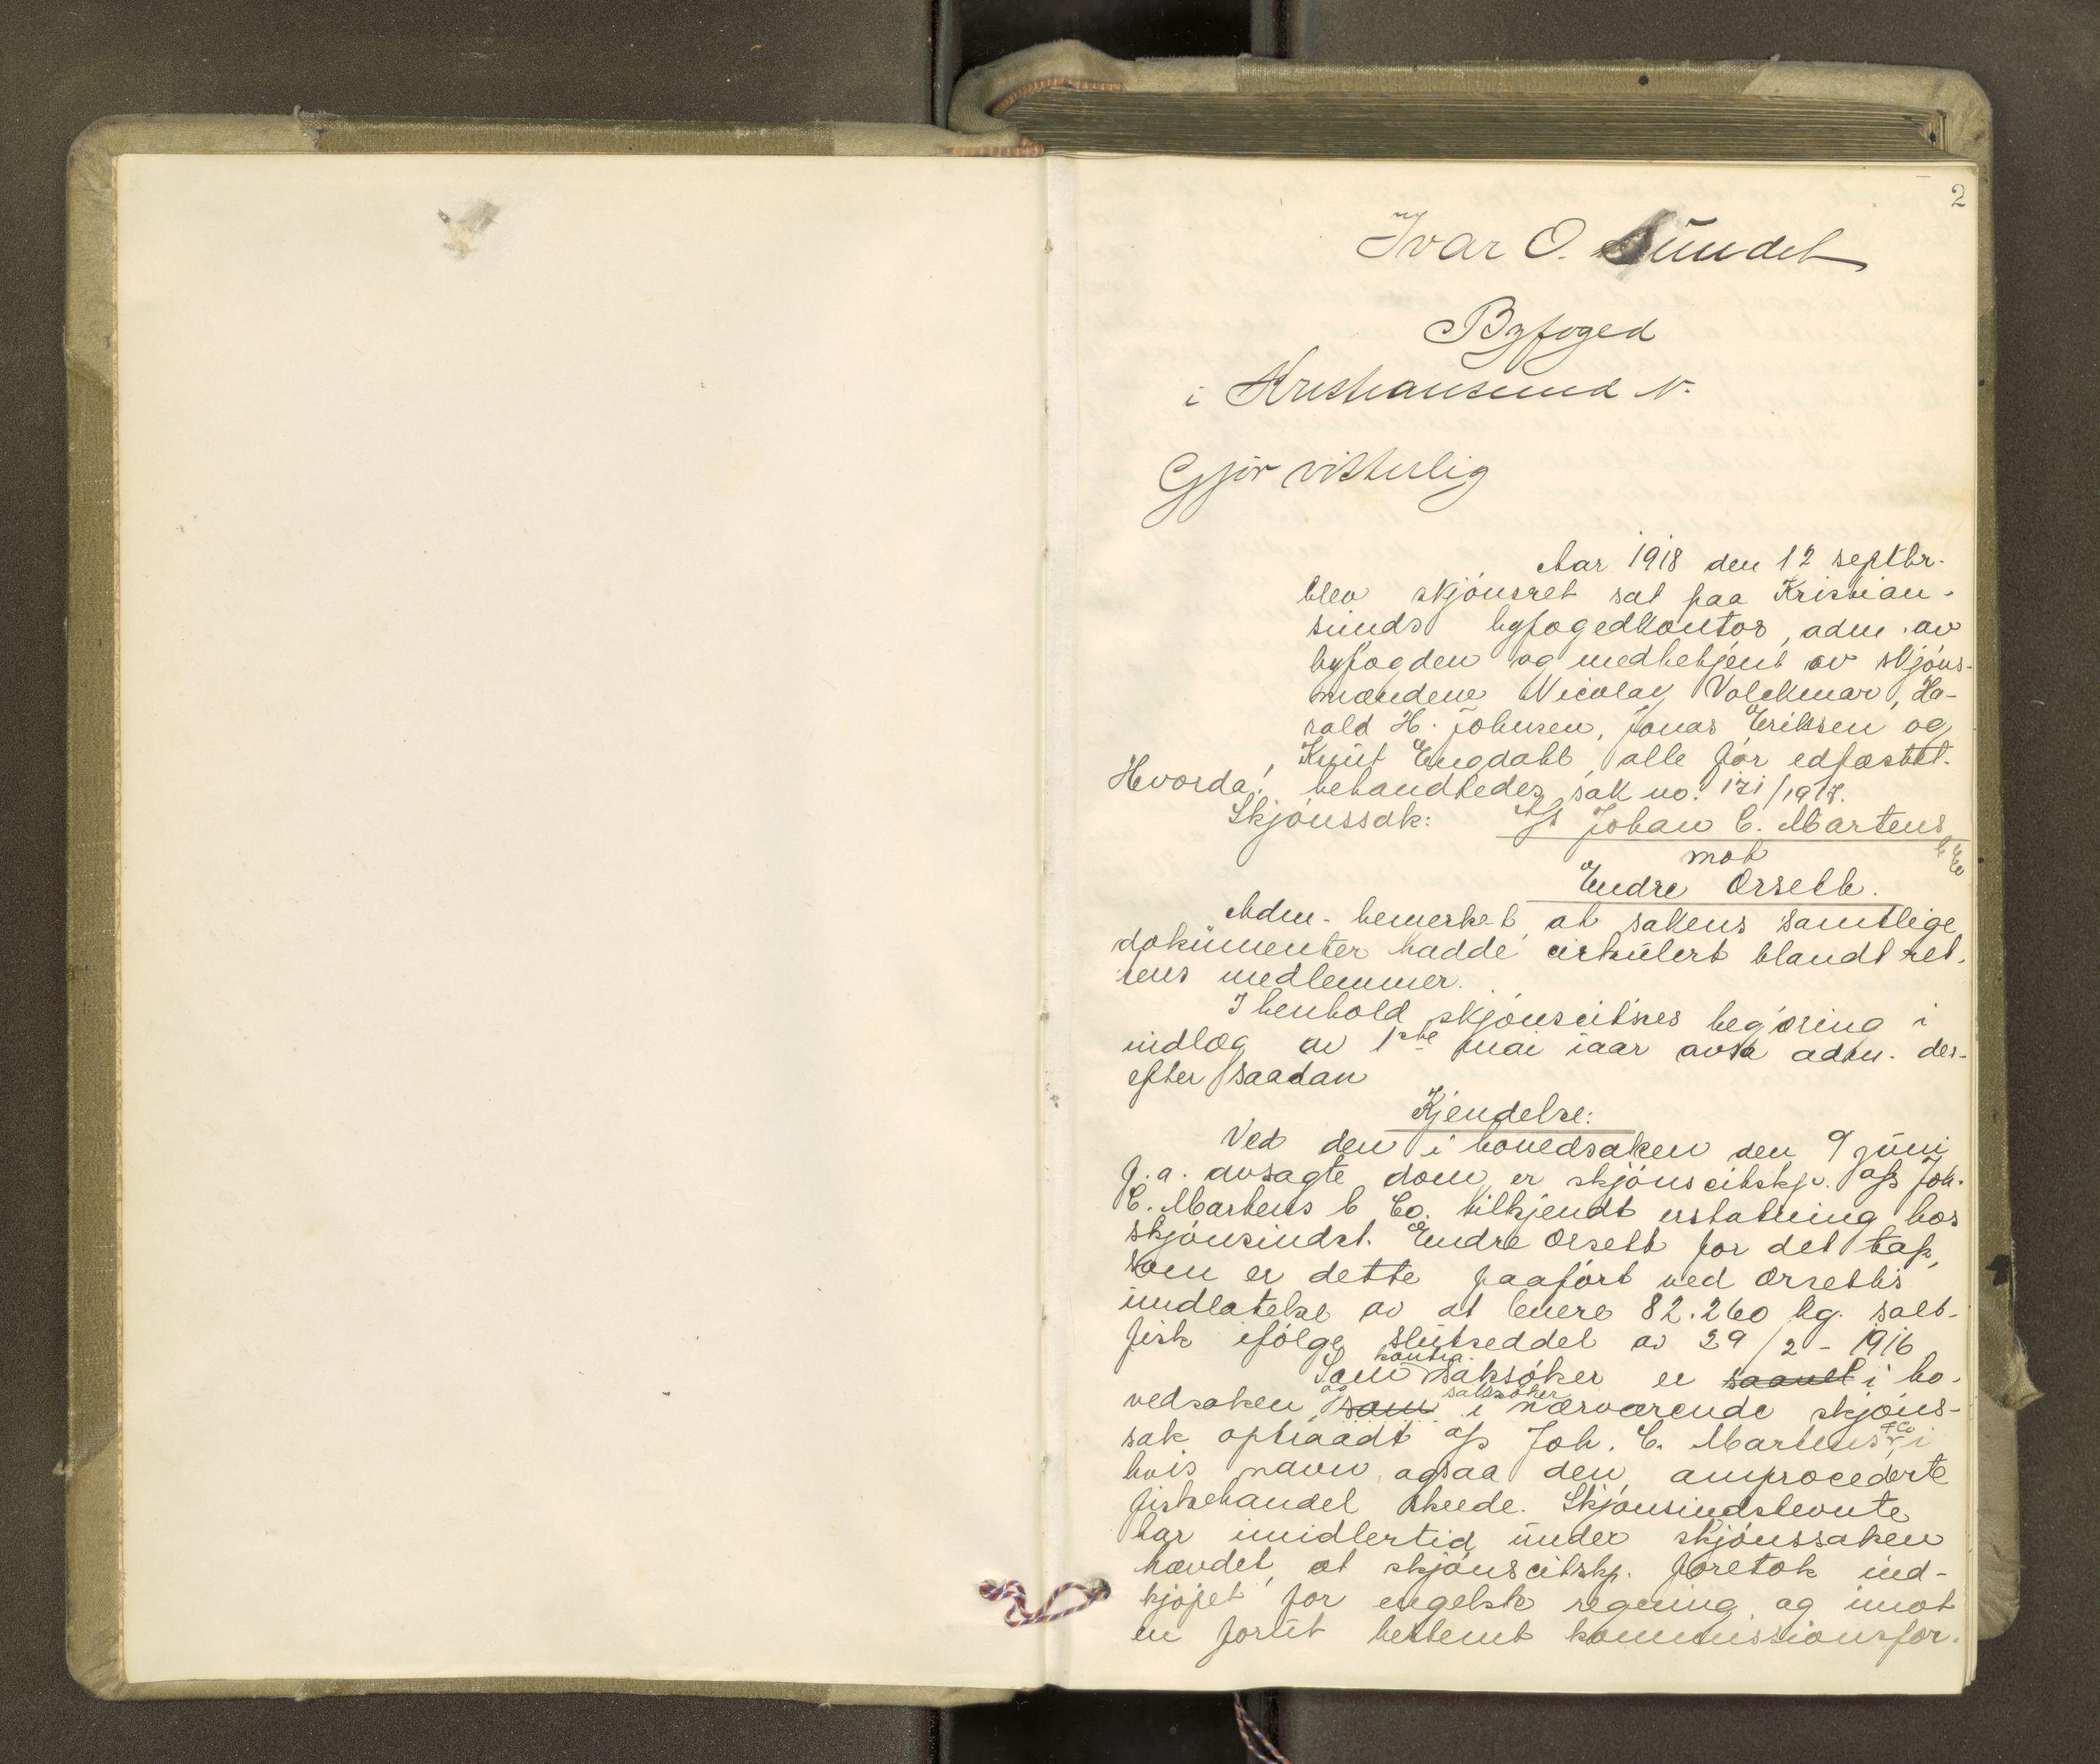 2
Ivar O. Sundet
Byfoged
i Kristiansund N.
Gjör vitterlig
Aar 1918 den 12 septbr.
blev skjönsret sat paa Kristian-
sunds byfogedkontor, adm. av
byfogden og medbetjent av skjöns-
mændene Nicolay Volckmar, Ha-
rald H. Johnsen, Jonas Eriksen og
Knut Engdahl, alle för edfæstet.
Hvorda: behandledes sak no. 171/1917.
Skjönssak: A/S Johan C. Martens
& Co
mot
Endre Orseth.
Adm. bemerket, at sakens samtlige
dokumenter hadde cirkulert blandt ret-
tens medlemmer.
I henhold skjönscitines begjæring i
indlæg av 1ste mai iaar avsa adm. der-
efter saadan
Kjendelse:
Ved den i hovedsaken den 9 juni
f.a. avsagte dom er skjönscitskp. A/S Joh.
C. Martens & Co. tilkjendt erstatning hos
skjönsindst. Endre Orseth for det tap,
som er dette paafört ved Orseths
undlatelse av at levere 82.260 kg. salt-
fisk ifölge slutseddel av 29/2 - 1916
kontra
Som saksöker er saavel i ho-
og saksöker
vedsaken som i nærværende skjöns-
sak optraadt A/S Joh. C. Martens & Co i
hvis navn ogsaa den omprocederte
fiskehandel skeede. Skjönsindstevnte
har imidlertid under skjönssaken
hævdet, at skjönscitskp. foretok ind-
kjöpet for engelsk regning og imot
en forut bestemt kommissionsfor-